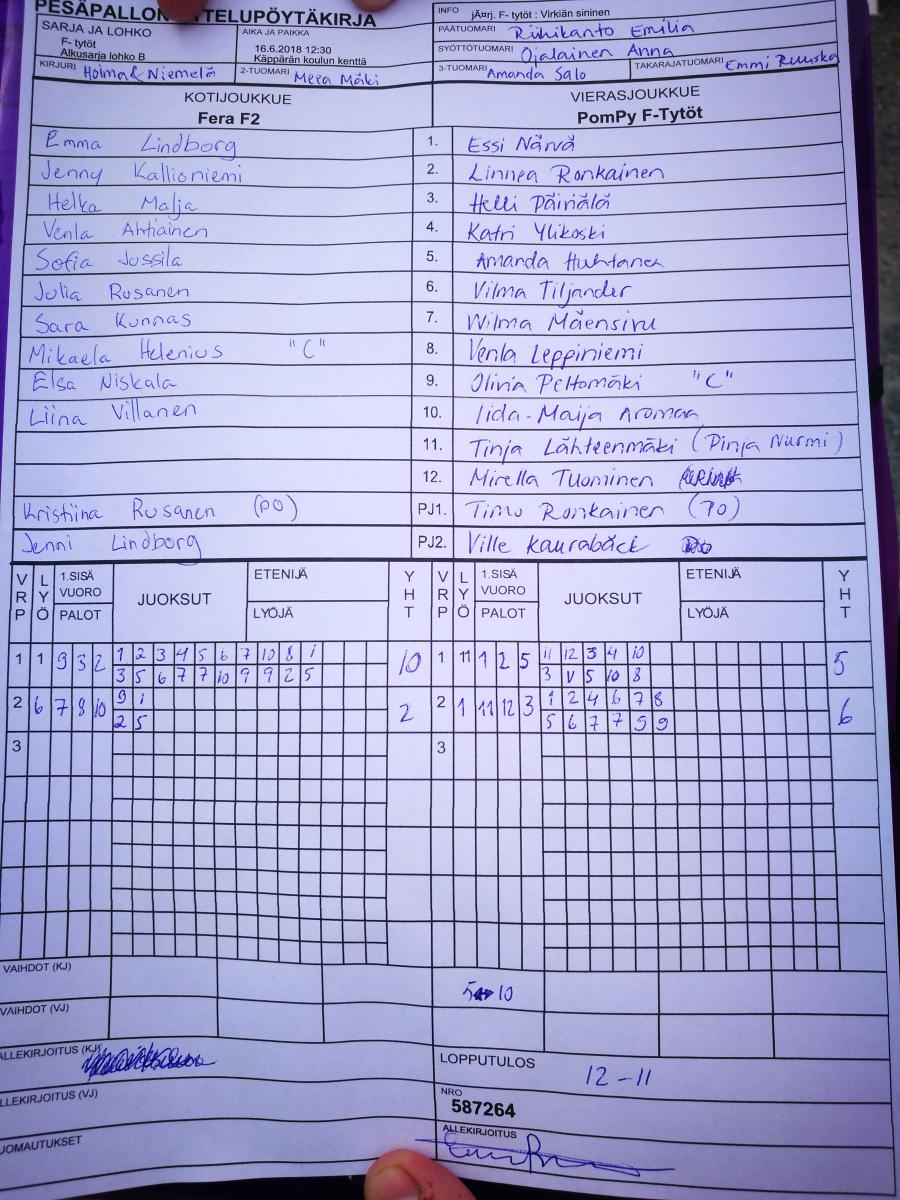 PESÄPALLON OTTELUPÖYTÄKIRJA
SARJA JA LOHKO
F- tytöt
Alkusarja lohko B
AIKA JA PAIKKA
16.6.2018 12:30
Käppärän koulun kenttä
INFO jÃ¤rj. F- tytöt : Virkiän sininen
PÄÄTUOMARI Riihikanto Emilia
SYÖTTÖTUOMARI Ojalainen Anna
KIRJURI Hoima & Niemelä
2-TUOMARI Meea Mäki
3-TUOMARI Amanda Salo
TAKARAJATUOMARI Emmi Ruuska
KOTIJOUKKUE VIERASJOUKKUE
Fera F2 PomPy F-Tytöt
Emma Lindborg 1. Essi Närvä
Jenny Kallioniemi 2. Linnea Ronkainen
Helka Malja 3. Helli Päiviälä
Venla Ahtiainen 4. Katri Ylikoski
Sofia Jussila 5. Amanda Huhtanen
Julia Rusanen 6. Vilma Tiljander
Sara Kunnas 7. Wilma Mäensivu
Mikaela Helenius "C" 8. Venla Leppiniemi
Elsa Niskala 9. Olivia Peltomäki "C"
Liina Villanen 10. Iida-Maija Aromaa
11. Tinja Lähteenmäki (Pinja Nurmi)
12. Mirella Tuominen
Kristiina Rusanen (PO) PJ1. Timo Ronkainen (PO)
Jenni Lindborg PJ2. Ville Kaurabäck
VRP LYÖ 1.SISÄ VUORO PALOT JUOKSUT ETENIJÄ LYÖJÄ YHT VRP LYÖ 1.SISÄ VUORO PALOT JUOKSUT ETENIJÄ LYÖJÄ YHT
1 1 9 3 2 1 2 3 4 5 6 7 10 8 1 10 1 11 1 2 5 11 12 3 4 10 5
3 5 6 7 7 10 9 9 2 5 3 V 5 10 8
2 6 7 8 10 9 1 2 2 1 11 12 3 1 2 4 6 7 8 6
2 5 5 6 7 7 9 9
3 3
VAIHDOT (KJ) 5 10
VAIHDOT (VJ)
ALLEKIRJOITUS (KJ)
LOPPUTULOS 12-11
ALLEKIRJOITUS (VJ)
NRO
587264
HUOMAUTUKSET
ALLEKIRJOITUS